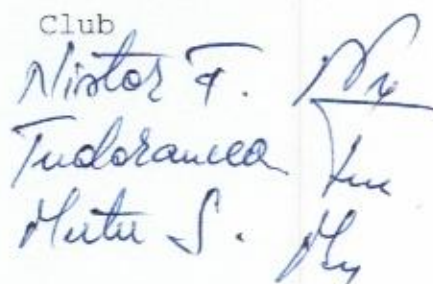 Club
Nistor F.
Tudorancea
Mutu S.